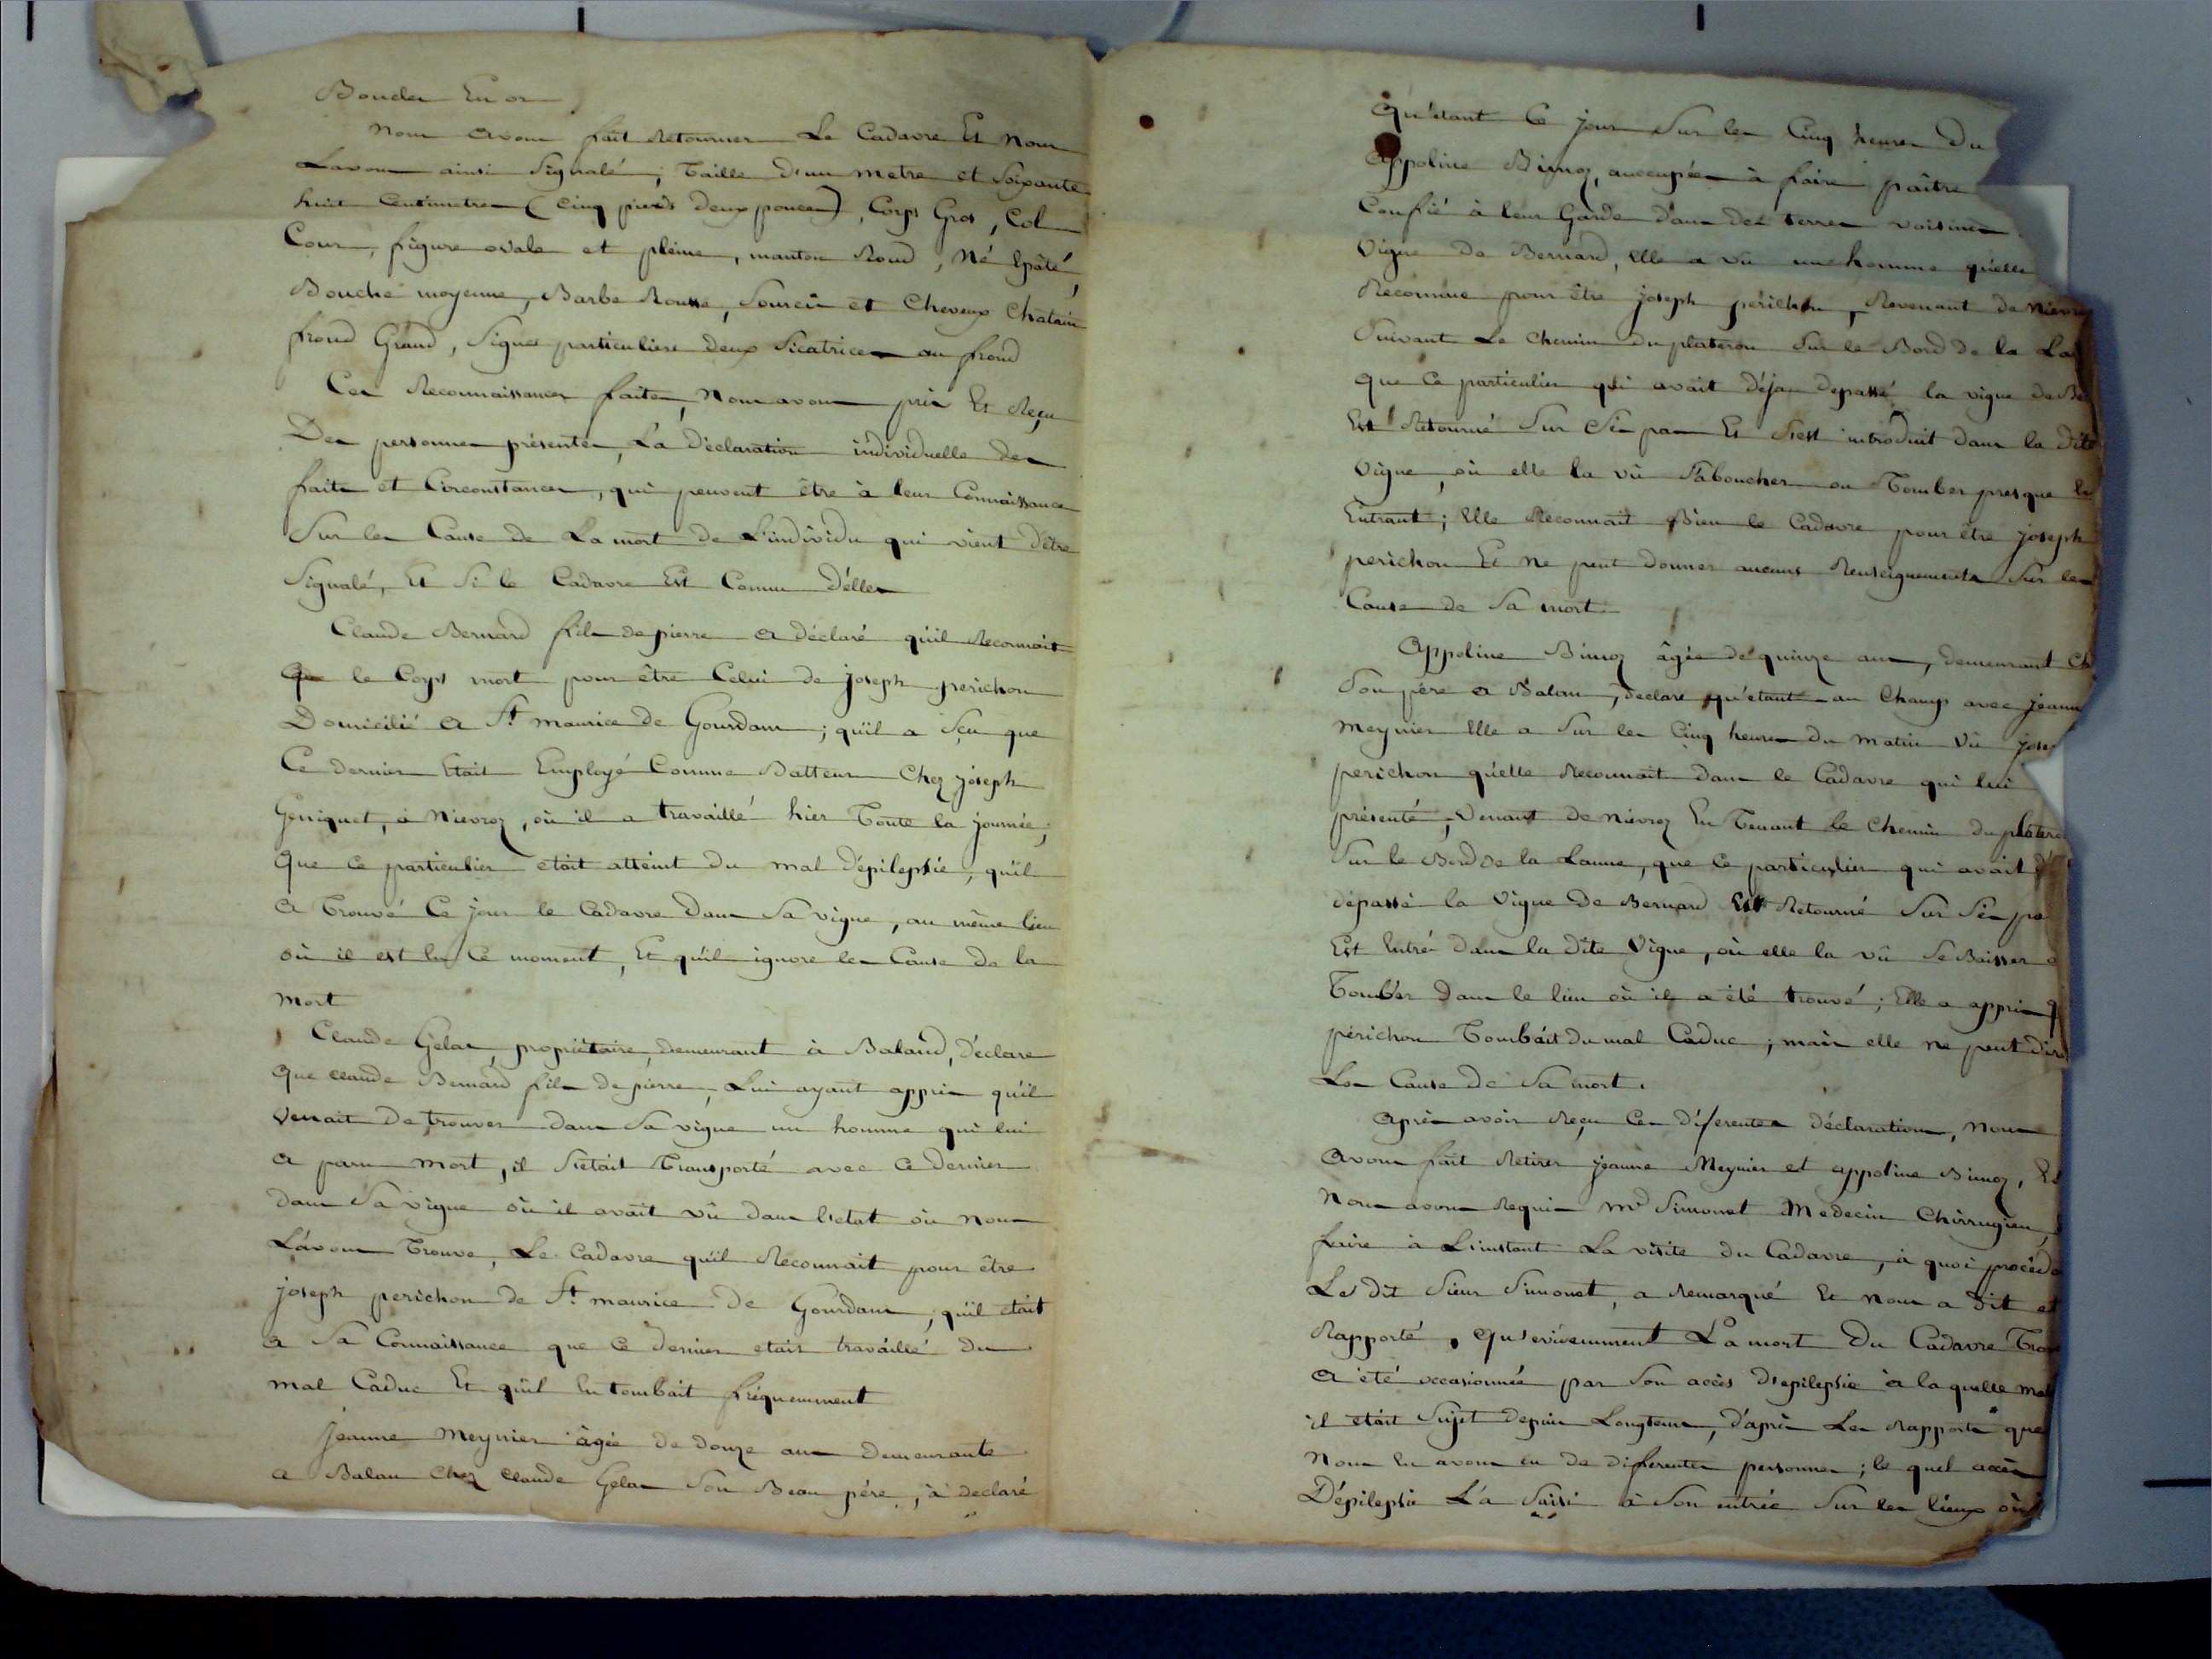 Boucles En or
Nous avons fait Retourner Le Cadavre Et Nous
Lavons ainsi Signalé; Taille d'un metre et Soixante
huit Centimetres (Cinq pieds deux pouces), Corps Gros, Col
Cour, figure ovale et pleine, manton Rond, Né Epâté,
Bouche moyenne, Barbe Rousse, Sourcis et Cheveux Chatain
frond Grand, Signes particuliers deux Sicatrices au frond
Ces Reconnaissances faites, Nous avons pris Et Reçu
Des personnes présentes, La Déclaration individuelle des
faits et Circonstances, qui peuvent être à leur Connaissance
Sur les Cause de La mort de L'individu qui vient d'être
Signalé, Et Si le Cadavre Est Connu D'elles
Claude Bernard fils de pierre a déclaré qu'il Reconnait
que le Corps mort pour être Celui de joseph perichon
Domicilié a St maurice de Gourdans; qu'il a Sçu que
Ce dernier Etait Employé Comme Batteur Chez joseph
Geniquet, à Nievroz, où il a travaillé hier Toute la journée,
que ce particulier etait atteint du mal d'épilepsie, qu'il
a Trouvé Ce jour le Cadavre Dans Sa vigne, au même lieu
où il est En Ce moment, Et qu'il ignore les Cause de la
mort
Claude Gelas, propriétaire, demeurant à Baland, déclare
que claude Bernard fils de pierre, Lui ayant appris qu'il
Venait de trouver dans Sa vigne un homme qui lui
a paru mort, il S'etait Transporté avec Ce dernier
dans Sa vigne où il avait vû dans l'etat où nous
L'avons Trouve, Le Cadavre qu'il Reconnait pour être
joseph perichon de St maurice de Gourdans; qu'il etait
a Sa Connaissance que Ce dernier etait travaillé du
mal Caduc Et qu'il En tombait fréquemment
Jeanne Meynier âgée de douze ans demeurante
a Balan Chez Claude Gelas Son Beau pére, à declaré
Qu'étant Ce jour Sur les Cinq heures Du
Appoline Bimoz, auccupées à faire paître
Confié à leur Garde dans des terres voisines
Vigne de Bernard, Elle a vû une homme qu'elle
Reconnue pour être joseph périchon, Revenant de Nievroz
Suivant Le Chemin du plateron Sur le Bord de la La
que Ce particulier qui avait déja depassé la vigne de Be
Est Retourné Sur Sés pas Et S'est introduit dans la dite
Vigne, où elle la vû S'aboucher ou Tomber presque En
Entrant; Elle Reconnait Bien le Cadavre pour être joseph
perichon Et Ne peut donner aucuns Renseignements Sur les
Cause de Sa mort
Appoline Bimoz âgée de quinze ans, demeurant Ch
Son pére a Balan, declare qu'etant au Champ avec jeann
Meynier Elle a Sur les Cinq heures du matin Vû jose
perichon qu'elle Reconnait dans le Cadavre qui lui
présenté, Venant de Nievroz En Tenant le Chemin du platero
Sur le Bord de la Laune, que Ce particulier qui avait d
dépassé la Vigne de Bernard Est Retourné Sur Sés pa
Est Entré dans la dite Vigne, où elle la vû Se Baisser
Tomber dans le lieu où il a été trouvé; Elle a appris q
périchon Tombait du mal Caduc; mais elle ne peut dire
Les Cause de Sa mort.
Après avoir Reçu Ces diferentes déclarations, Nous
avons fait Retirer jeanne Meynier et appoline Bimoz, Et
Nous avons Requis Mr Simonet Medecin Chirrugien,
faire à L'instant La visite du Cadavre, à quoi procéda
Le dit Sieur Simonet, a Remarqué Et Nous a dit et
Rapporté, Qu'evidemment La mort Du Cadavre Trou
a été occasionnée par Son accès d'epilepsie à la quelle mal
il etait Sujet depuis Longtems, d'aprés Les Rapports que
Nous En avons eu de differentes personnes; le quel accès
D'épilepsie L'a Saisi à Son entrée Sur les lieux où